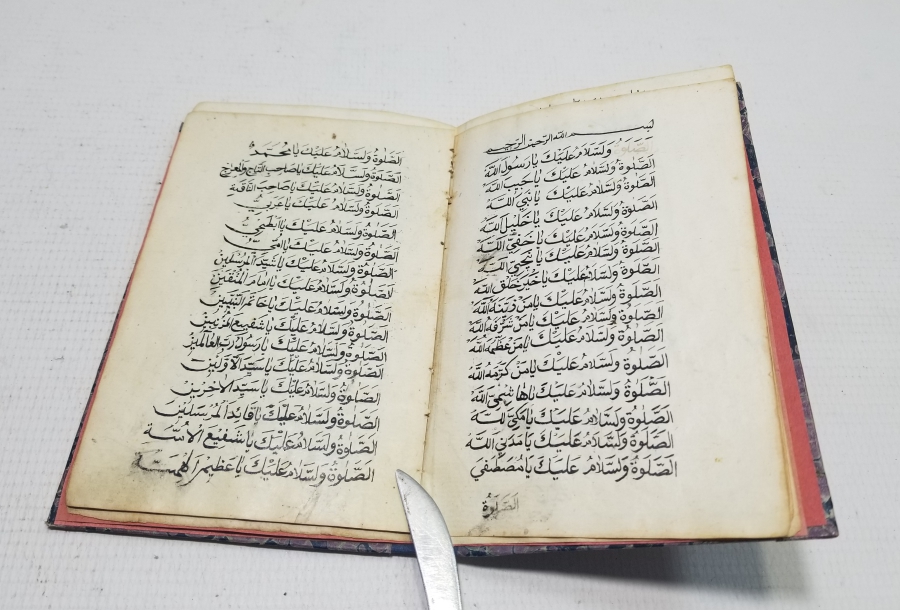 بسم الله الرحمن الرحيم
ولسلام عليك يا رسول الله
الصلوة ولسلام عليك يا حبيب الله
الصلوة ولسلام عليك يا نبي الله
الصلوة ولسلام عليك يا خليل الله
الصلوة ولسلام عليك يا صفي الله
الصلوة ولسلام عليك يا نجي الله
الصلوة ولسلام عليك يا خير خلق الله
الصلوة ولسلام عليك يا من زينه الله
الصلوة ولسلام عليك يا من شرفه الله
الصلوة ولسلام عليك يا من عظمه الله
الصلوة ولسلام عليك يا من كرمه الله
الصلوة ولسلام عليك
الصلوة ولسلام عليك يا مكي الله
الصلوة ولسلام عليك يا مدني الله
الصلوة ولسلام عليك يا مصطفي
الصلوة
الصلوة ولسلام عليك يا محمد
الصلوة ولسلام عليك يا صاحب التاج والمعراج
الصلوة ولسلام عليك يا صاحب الناقة
الصلوة ولسلام عليك يا عربي
الصلوة ولسلام عليك يا ابطحي
الصلوة ولسلام عليك يا امي
الصلوة ولسلام عليك يا سيد المرسلين
الصلوة ولسلام عليك يا امام المتقين
الصلوة ولسلام عليك يا خاتم النبيين
الصلوة ولسلام عليك يا شفيع المذنبين
الصلوة ولسلام عليك يا رسول رب العالمين
الصلوة ولسلام عليك يا سيد الاولين
الصلوة ولسلام عليك يا سيد الاخرين
الصلوة ولسلام عليك يا قايد المرسلين
الصلوة ولسلام عليك يا شفيع الامة
الصلوة ولسلام عليك يا عظيم الهمة